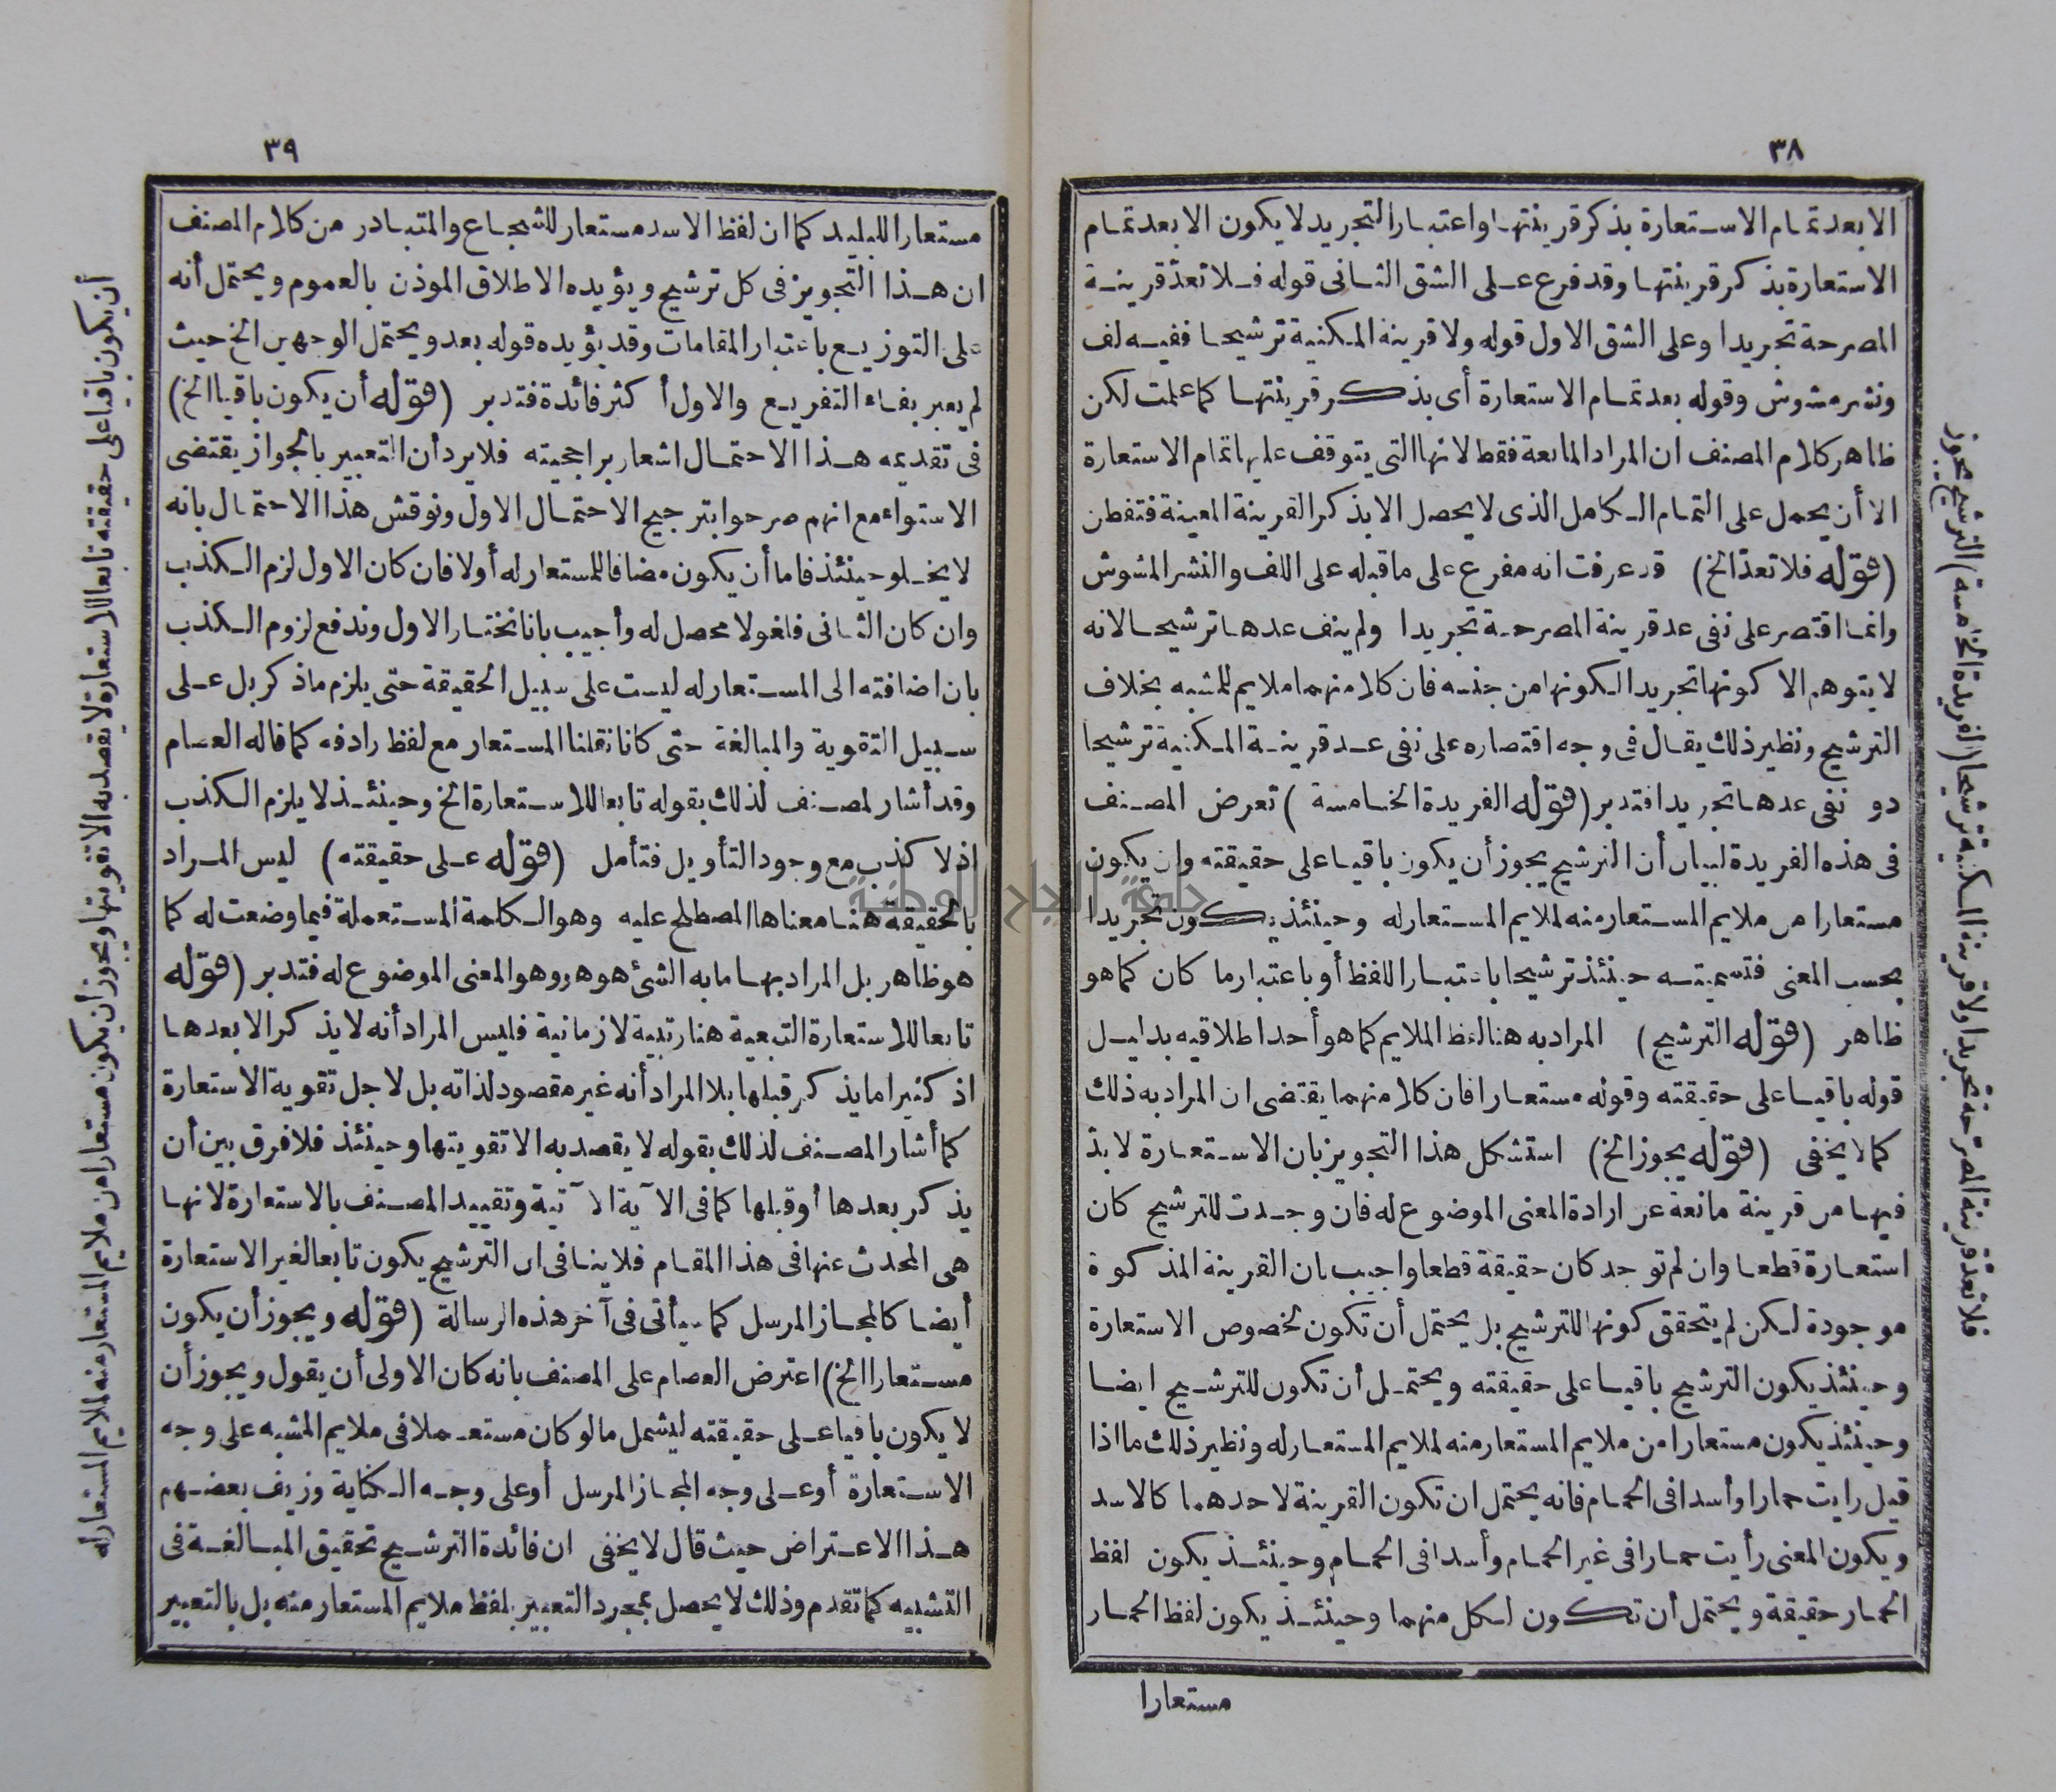 ٣٨
الا بعد تمام الاستعارة بذكر قرينتها واعتبار التجريد لا يكون الا بعد تمام
الاستعارة بذكر قرينتها وقد فرع على الشق الثانى قوله فلا تعدّ قرينة
المصرحة تجريدا وعلى الشق الاول قوله ولا قرينة المكنية ترشيحا ففيه لف
ونشر مشوش وقوله بعد تمام الاستعارة أى بذكر قرينتها كما علمت لكن
ظاهر كلام المصنف ان المراد المانعة فقط لانها التى يتوقف عليها تمام الاستعارة
الا أن يحمل على التمام الكامل الذى لا يحصل الا بذكر القرينة المعينة فتفطن
(قوله فلا تعدّ الخ) قد عرفت انه مفرع على ما قبله على اللف والنشر المشوش
وانما اقتصر على نفى عد قرينة المصرحة تجريدا ولم ينف عدها ترشيحا لانه
لا يتوهم الا كونها تجريدا لكونها من جنسه فان كلا منهما ملايم للمشبه بخلاف
الترشيح ونظير ذلك يقال فى وجه اقتصاره على نفى عد قرينة المكنية ترشيحا
دو نفى عدها تجريدا فتدبر (قوله الفريدة الخامسة) تعرض المصنف
فى هذه الفريدة لبيان أن الترشيح يجوز أن يكون باقيا على حقيقته وان يكون
مستعارا من ملايم المستعار منه لملايم المستعار له وحينئذ يكون تجريدا
بحسب المعنى فتسميته حينئذ ترشيحا باعتبار اللفظ أو باعتبار ما كان كما هو
ظاهر (قوله الترشيح) المراد به هنا لفظ الملايم كما هو أحد اطلاقيه بدليل
قوله باقيا على حقيقته وقوله مستعارا فان كلا منهما يقتضى ان المراد به ذلك
كما لا يخفى (قوله يجوز الخ) استشكل هذا التجويز بان الاستعارة لا بدّ
فيها من قرينة مانعة عن ارادة المعنى الموضوع له فان وجدت للترشيح كان
استعارة قطعا وان لم توجد كان حقيقة قطعا واجيب بان القرينة المذكورة
موجودة لكن لم يتحقق كونها للترشيح بل يحتمل أن تكون لخصوص الاستعارة
وحينئذ يكون الترشيح باقيا على حقيقته ويحتمل أن تكون للترشيح ايضا
وحينئذ يكون مستعارا من ملايم المستعار منه لملايم المستعار له ونظير ذلك ما اذا
قيل رايت حمارا وأسدا فى الحمام فانه يحتمل ان تكون القرينة لاحدهما كالاسد
ويكون المعنى رأيت حمارا فى غير الحمام وأسدا فى الحمام وحينئذ يكون لفظ
الحمار حقيقة ويحتمل أن تكون لكل منهما وحينئذ يكون لفظ الحمار
مستعارا
فلا تعدّ قرينة المصرّحة تجريدا ولا قرينة المكنية ترشيحا (الفريدة الخامسة) الترشيح يجوز
٣٩
مستعارا للبليد كما ان لفظ الاسد مستعار للشجاع والمتبادر من كلام المصنف
ان هذا التجويز فى كل ترشيح ويؤيده الاطلاق الموذن بالعموم ويحتمل أنه
على التوزيع باعتبار المقامات وقد يؤيده قوله بعد ويحتمل الوجهين الخ حيث
لم يعبر بفاء التفريع والاول أكثر فائدة فتدبر (قوله أن يكون باقيا الخ)
فى تقديمه هذا الاحتمال اشعار براجحيته فلا يرد أن التعبير بالجواز يقتضى
الاستواء مع انهم صرحوا بترجيح الاحتمال الاول ونوقش هذا الاحتمال بانه
لا يخلو حينئذ فاما أن يكون مضافا للمستعار له أولا فان كان الاول لزم الكذب
وان كان الثانى فلغو لا محصل له وأجيب بانا نختار الاول وندفع لزوم الكذب
بان اضافته الى المستعار له ليست على سبيل الحقيقة حتى يلزم ما ذكر بل على
سبيل التقوية والمبالغة حتى كانا نقلنا المستعار مع لفظ رادفه كما قاله العصام
وقد أشار لمصنف لذلك بقوله تابعا للاستعارة الخ وحينئذ لا يلزم الكذب
اذ لا كذب مع وجود التأويل فتأمل (قوله على حقيقته) ليس المراد
بالحقيقة هنا معناها المصطلح عليه وهو الكلمة المستعملة فيما وضعت له كما
هو ظاهر بل المراد بها ما به الشئ هو هو وهو المعنى الموضوع له فتدبر (قوله
تابعا للاستعارة التبعية هنا رتبية لا زمانية فليس المراد أنه لا يذكر الا بعدها
اذ كثيرا ما يذكر قبلها بلا المراد أنه غير مقصود لذاته بل لاجل تقوية الاستعارة
كما أشار المصنف لذلك بقوله لا يقصد به الا تقويتها وحينئذ فلا فرق بين أن
يذكر بعدها أو قبلها كما فى الآية الآتية وتقييد المصنف بالاستعارة لانها
هى المحدث عنها فى هذا المقام فلا ينافى ان الترشيح يكون تابعا لغير الاستعارة
أيضا كالمجاز المرسل كما سيأتى فى آخر هذه الرسالة (قوله ويجوز أن يكون
مستعارا الخ) اعترض العصام على المصنف بانه كان الاولى أن يقول ويجوز أن
لا يكون باقيا على حقيقته ليشمل ما لو كان مستعملا فى ملايم المشبه على وجه
الاستعارة أو على وجه المجاز المرسل أو على وجه الكناية وزيف بعضهم
هذا الاعتراض حيث قال لا يخفى ان فائدة الترشيح تحقيق المبالغة فى
التشبيه كما تقدم وذلك لا يحصل بمجرد التعبير بلفظ ملايم المستعار منه بل بالتعبير
أن يكون باقيا على حقيقته تابعا للاستعارة لا يقصد به الا تقويتها ويجوز أن يكون مستعارا من ملايم المستعار منه لملايم المستعار له
جامعة النجاح الوطنية